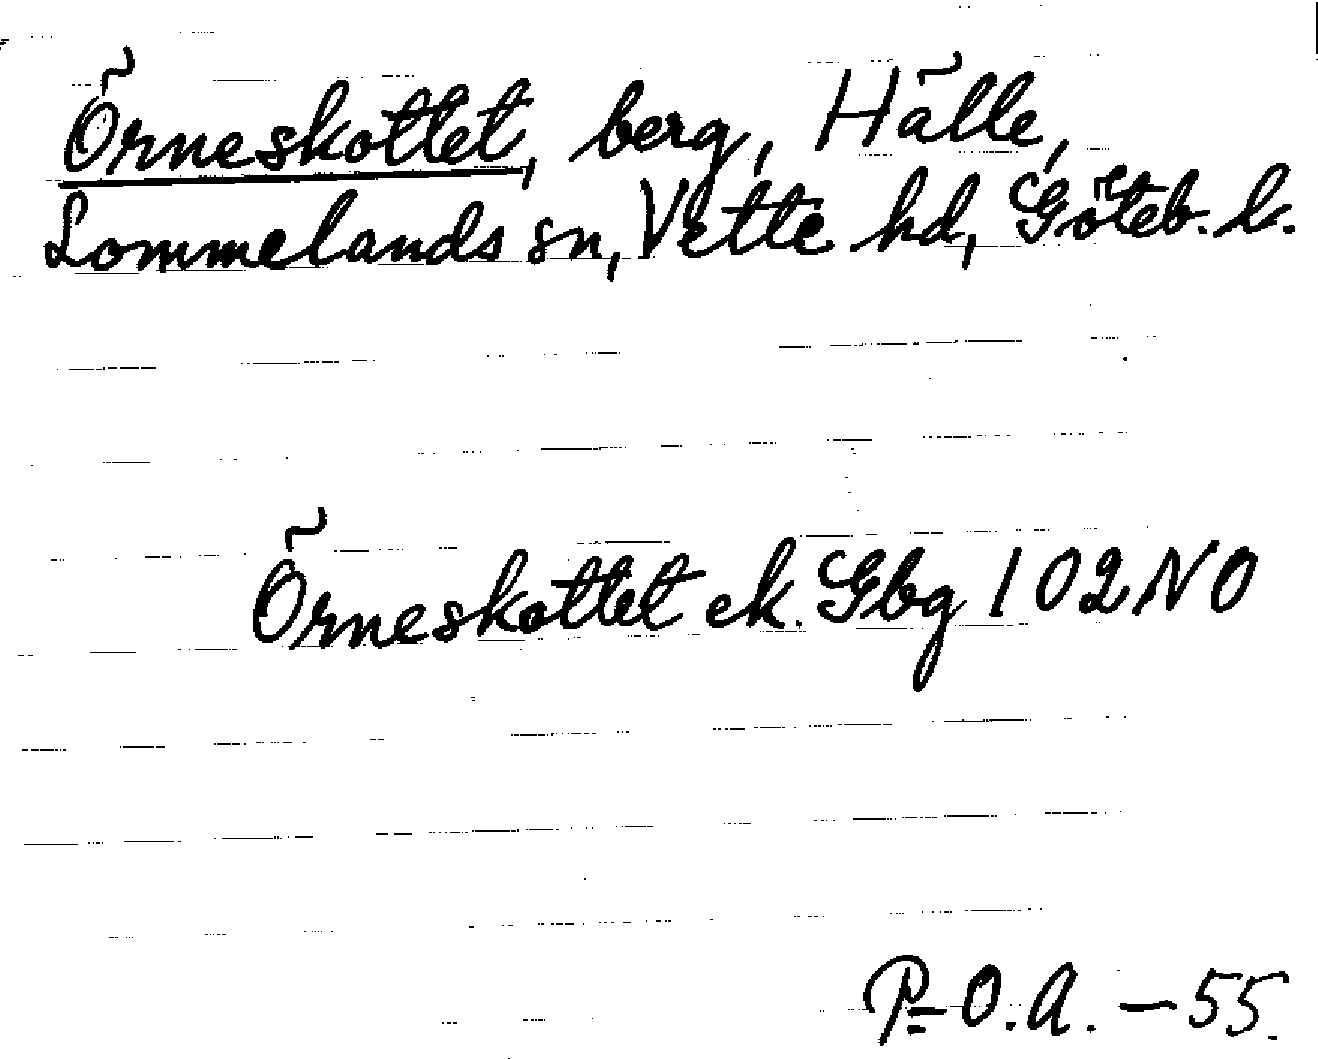 Örneskottet, berg, Hälle,
Lommelands sn, Vette hd, Göteb. l.
Örneskottet ek. Gbg 102 NO
P-O.A. - 55.